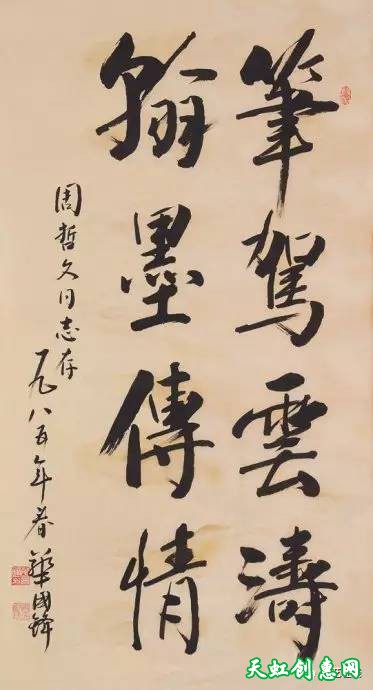 筆駕雲濤
翰墨傳情
周哲文同志存
一九八五年春
華國鋒
天虹创惠网